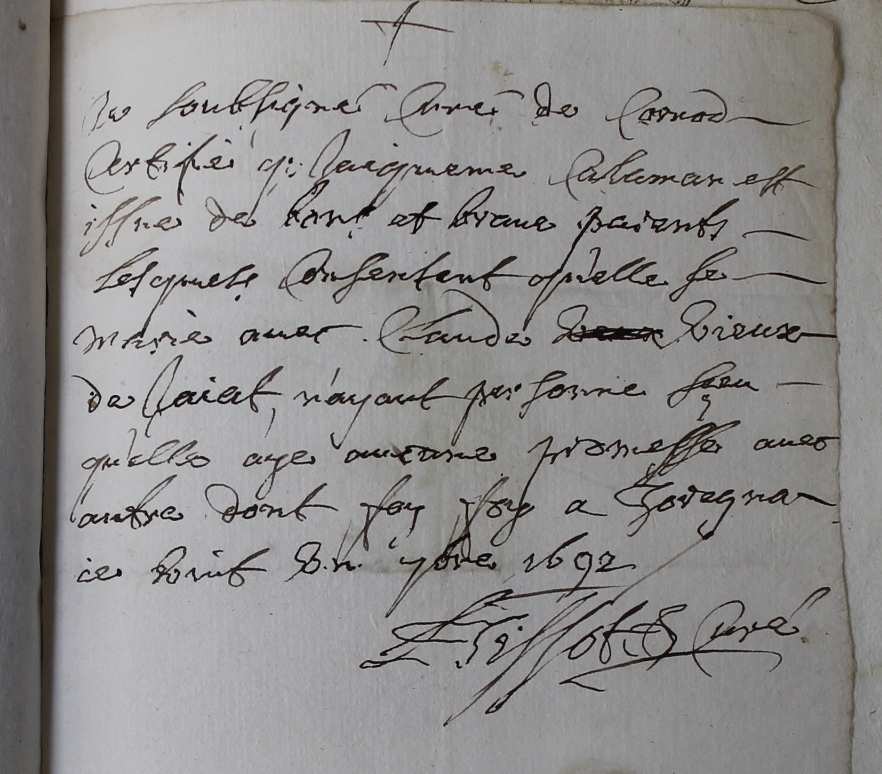 Je soubsigné Curé de Cornod
Certifie q; Jaiqueme Calaman est
issue de bons et brave parents
lesquels Consentent qu'elle se
marie avec Claude Vieux
de Jaiat, n'ayant personne sceu
qu'elle aye aucune promesse avec
autre dont foy fay a Toregna
ce vint un 9bre 1692
Tissot Curé